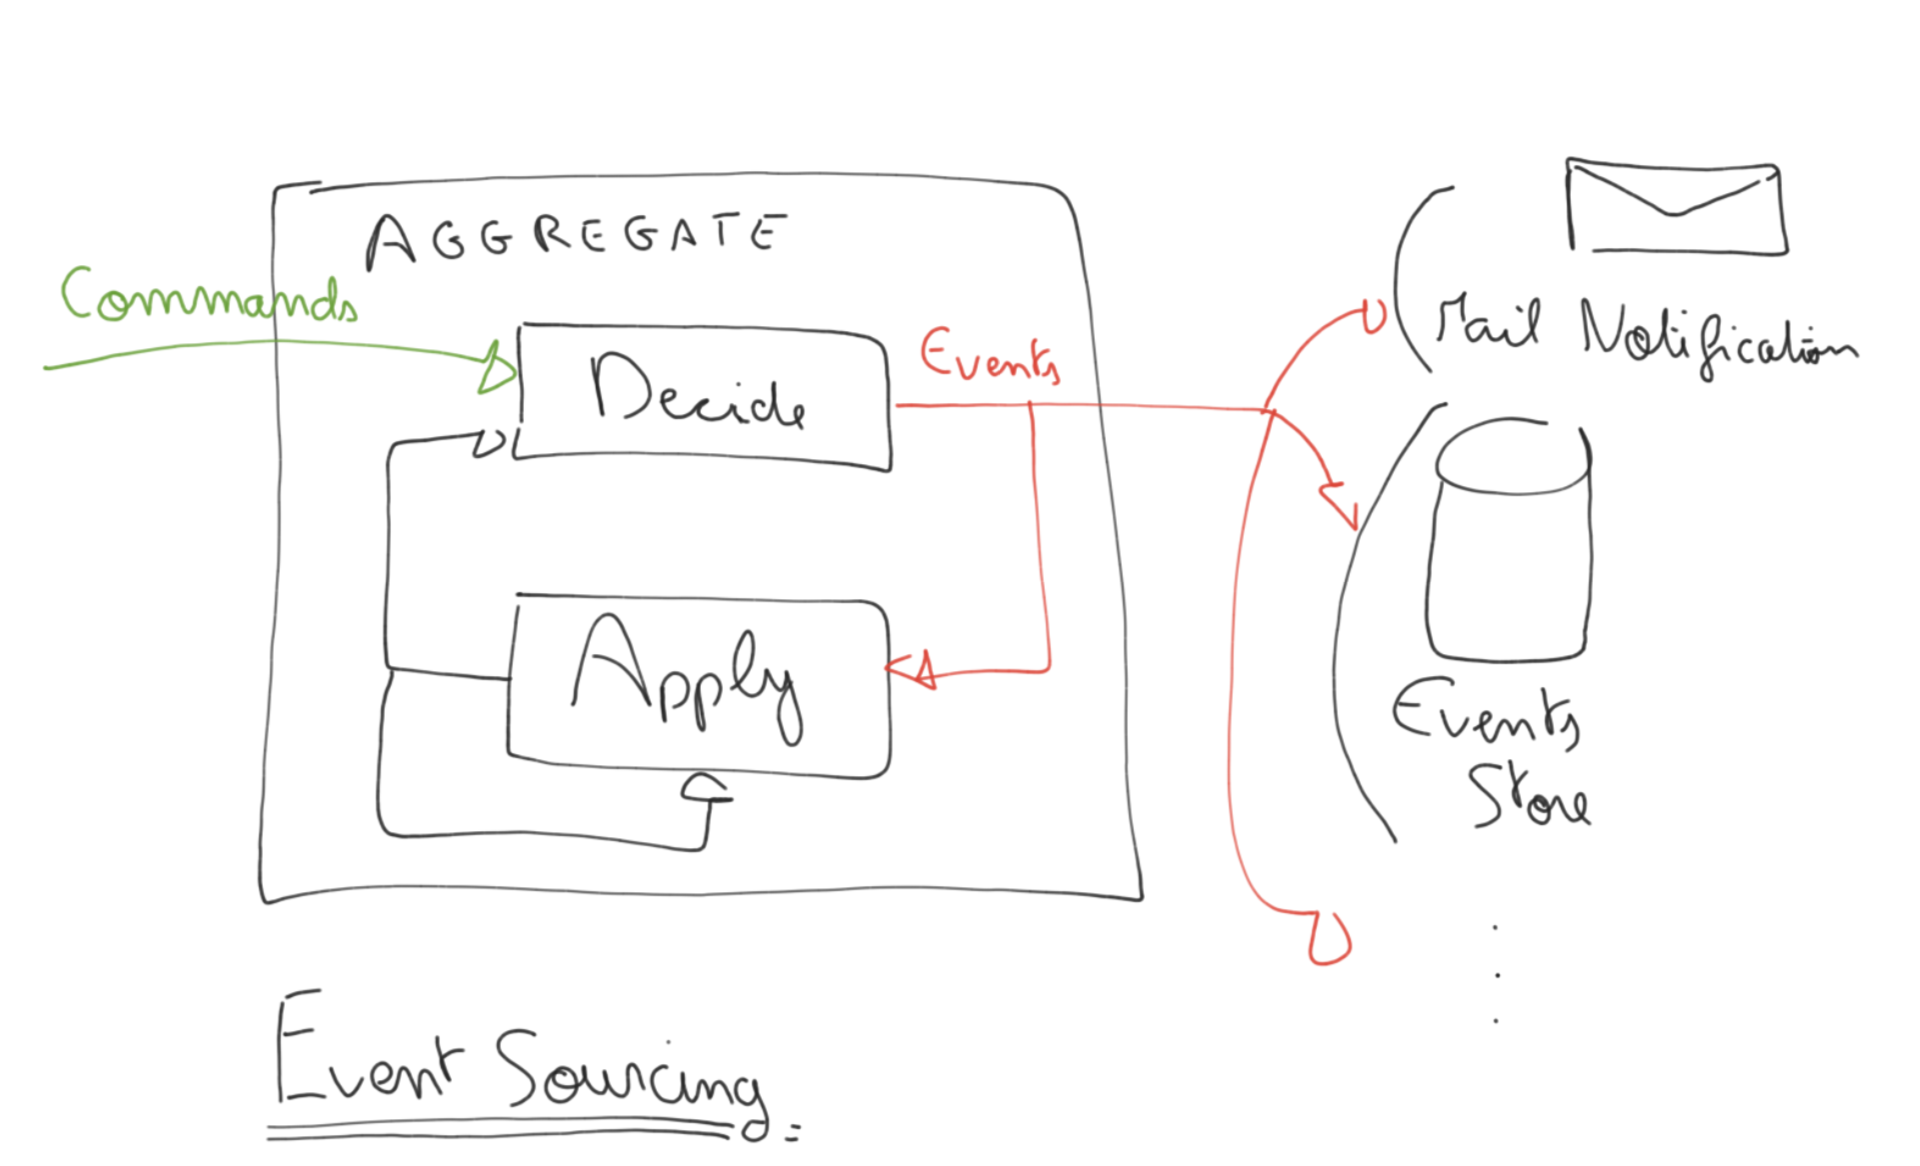 AGGREGATE
Commands
Decide
Events
Apply
Mail Notification
Events
Store
Event Sourcing.